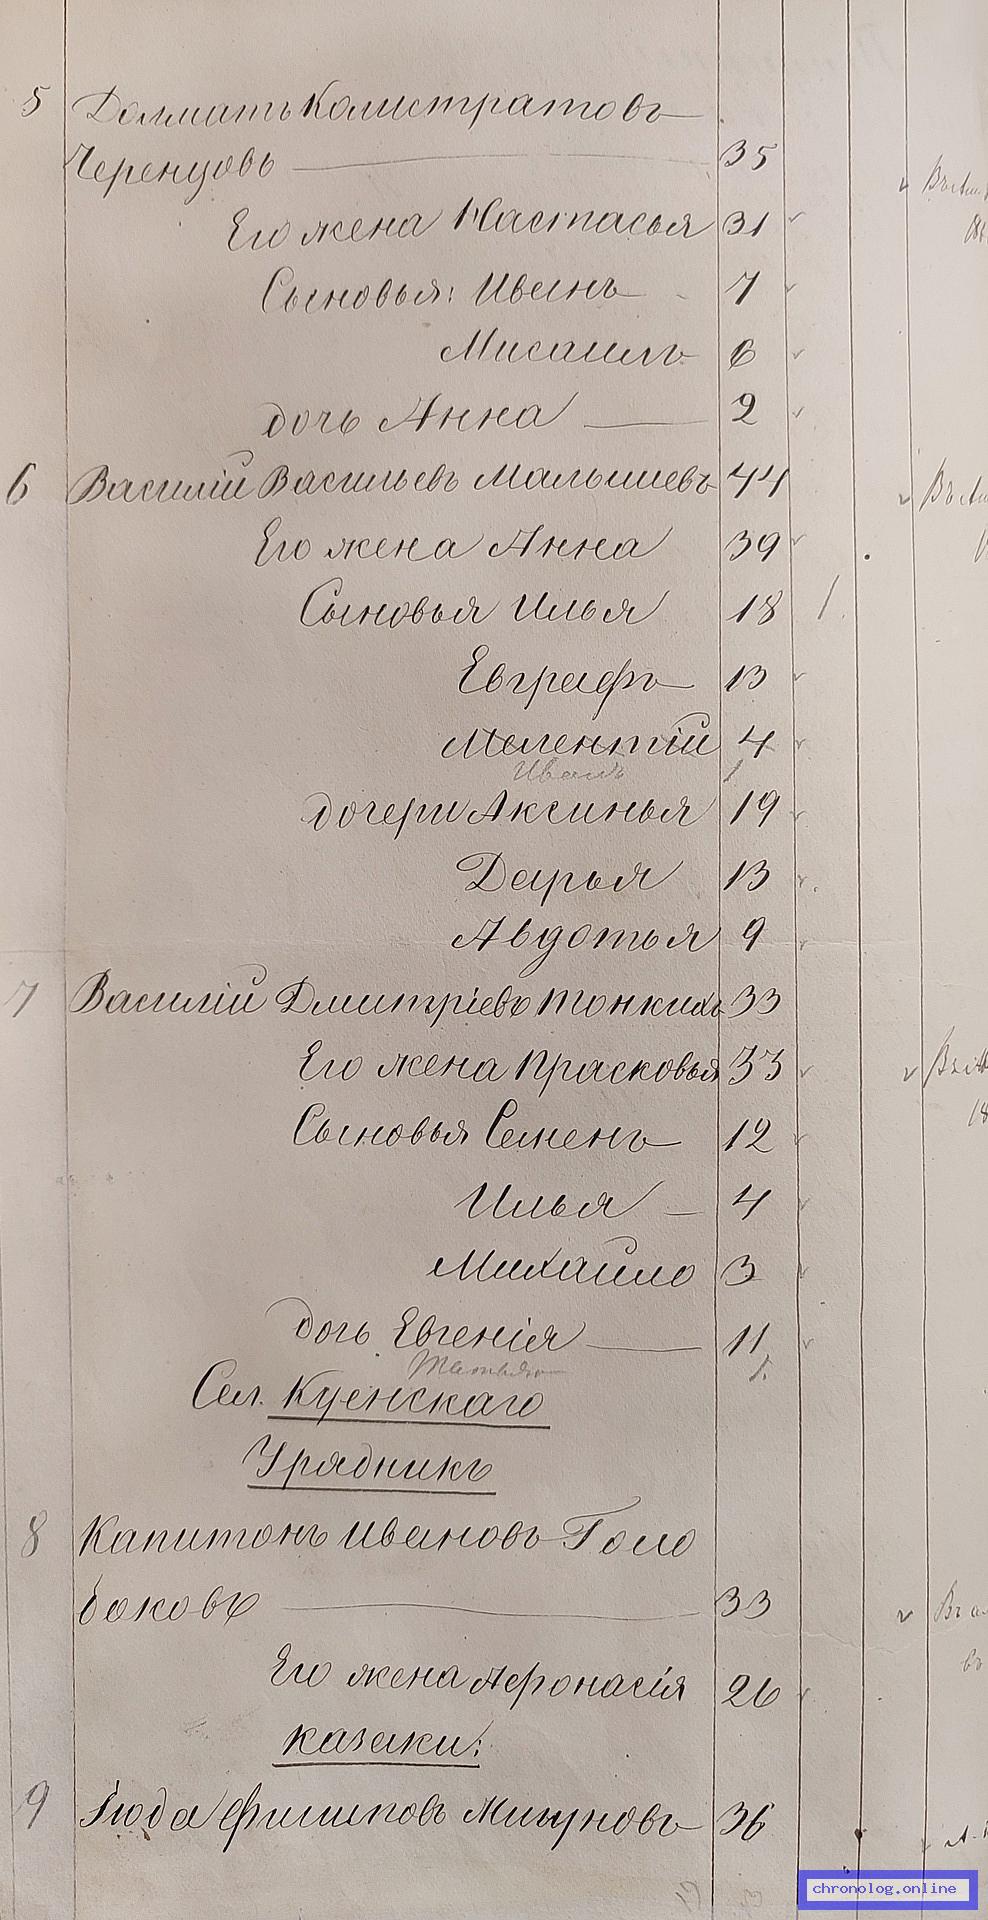 5 Долматъ Калистратовъ
Черенцовъ 35
Его жена Настасья 31
Сыновья: Иванъ 7
Мисаилъ 6
дочь Анна 2
6 Василій Васильевъ Малышевъ 44
Его жена Анна 39
Сыновья Илья 18 1.
Евграфъ 13
Мелентій 4
Иванъ 1
дочери Аксинья 19
Дарья 13
Авдотья 9
7 Василій Дмитріевъ Тонкихъ 33
Его жена Прасковья 33
Сыновья Семенъ 12
Илья 4
Михайло 3
дочь Евгенія 11
Татьяна 1.
Сел. Куенскаго
Урядникъ
8 Капитонъ Ивановъ Голо
боковъ 33
Его жена Афонасія 26
казаки:
9 Іюда Филиповъ Мигуновъ 36
chronolog.online